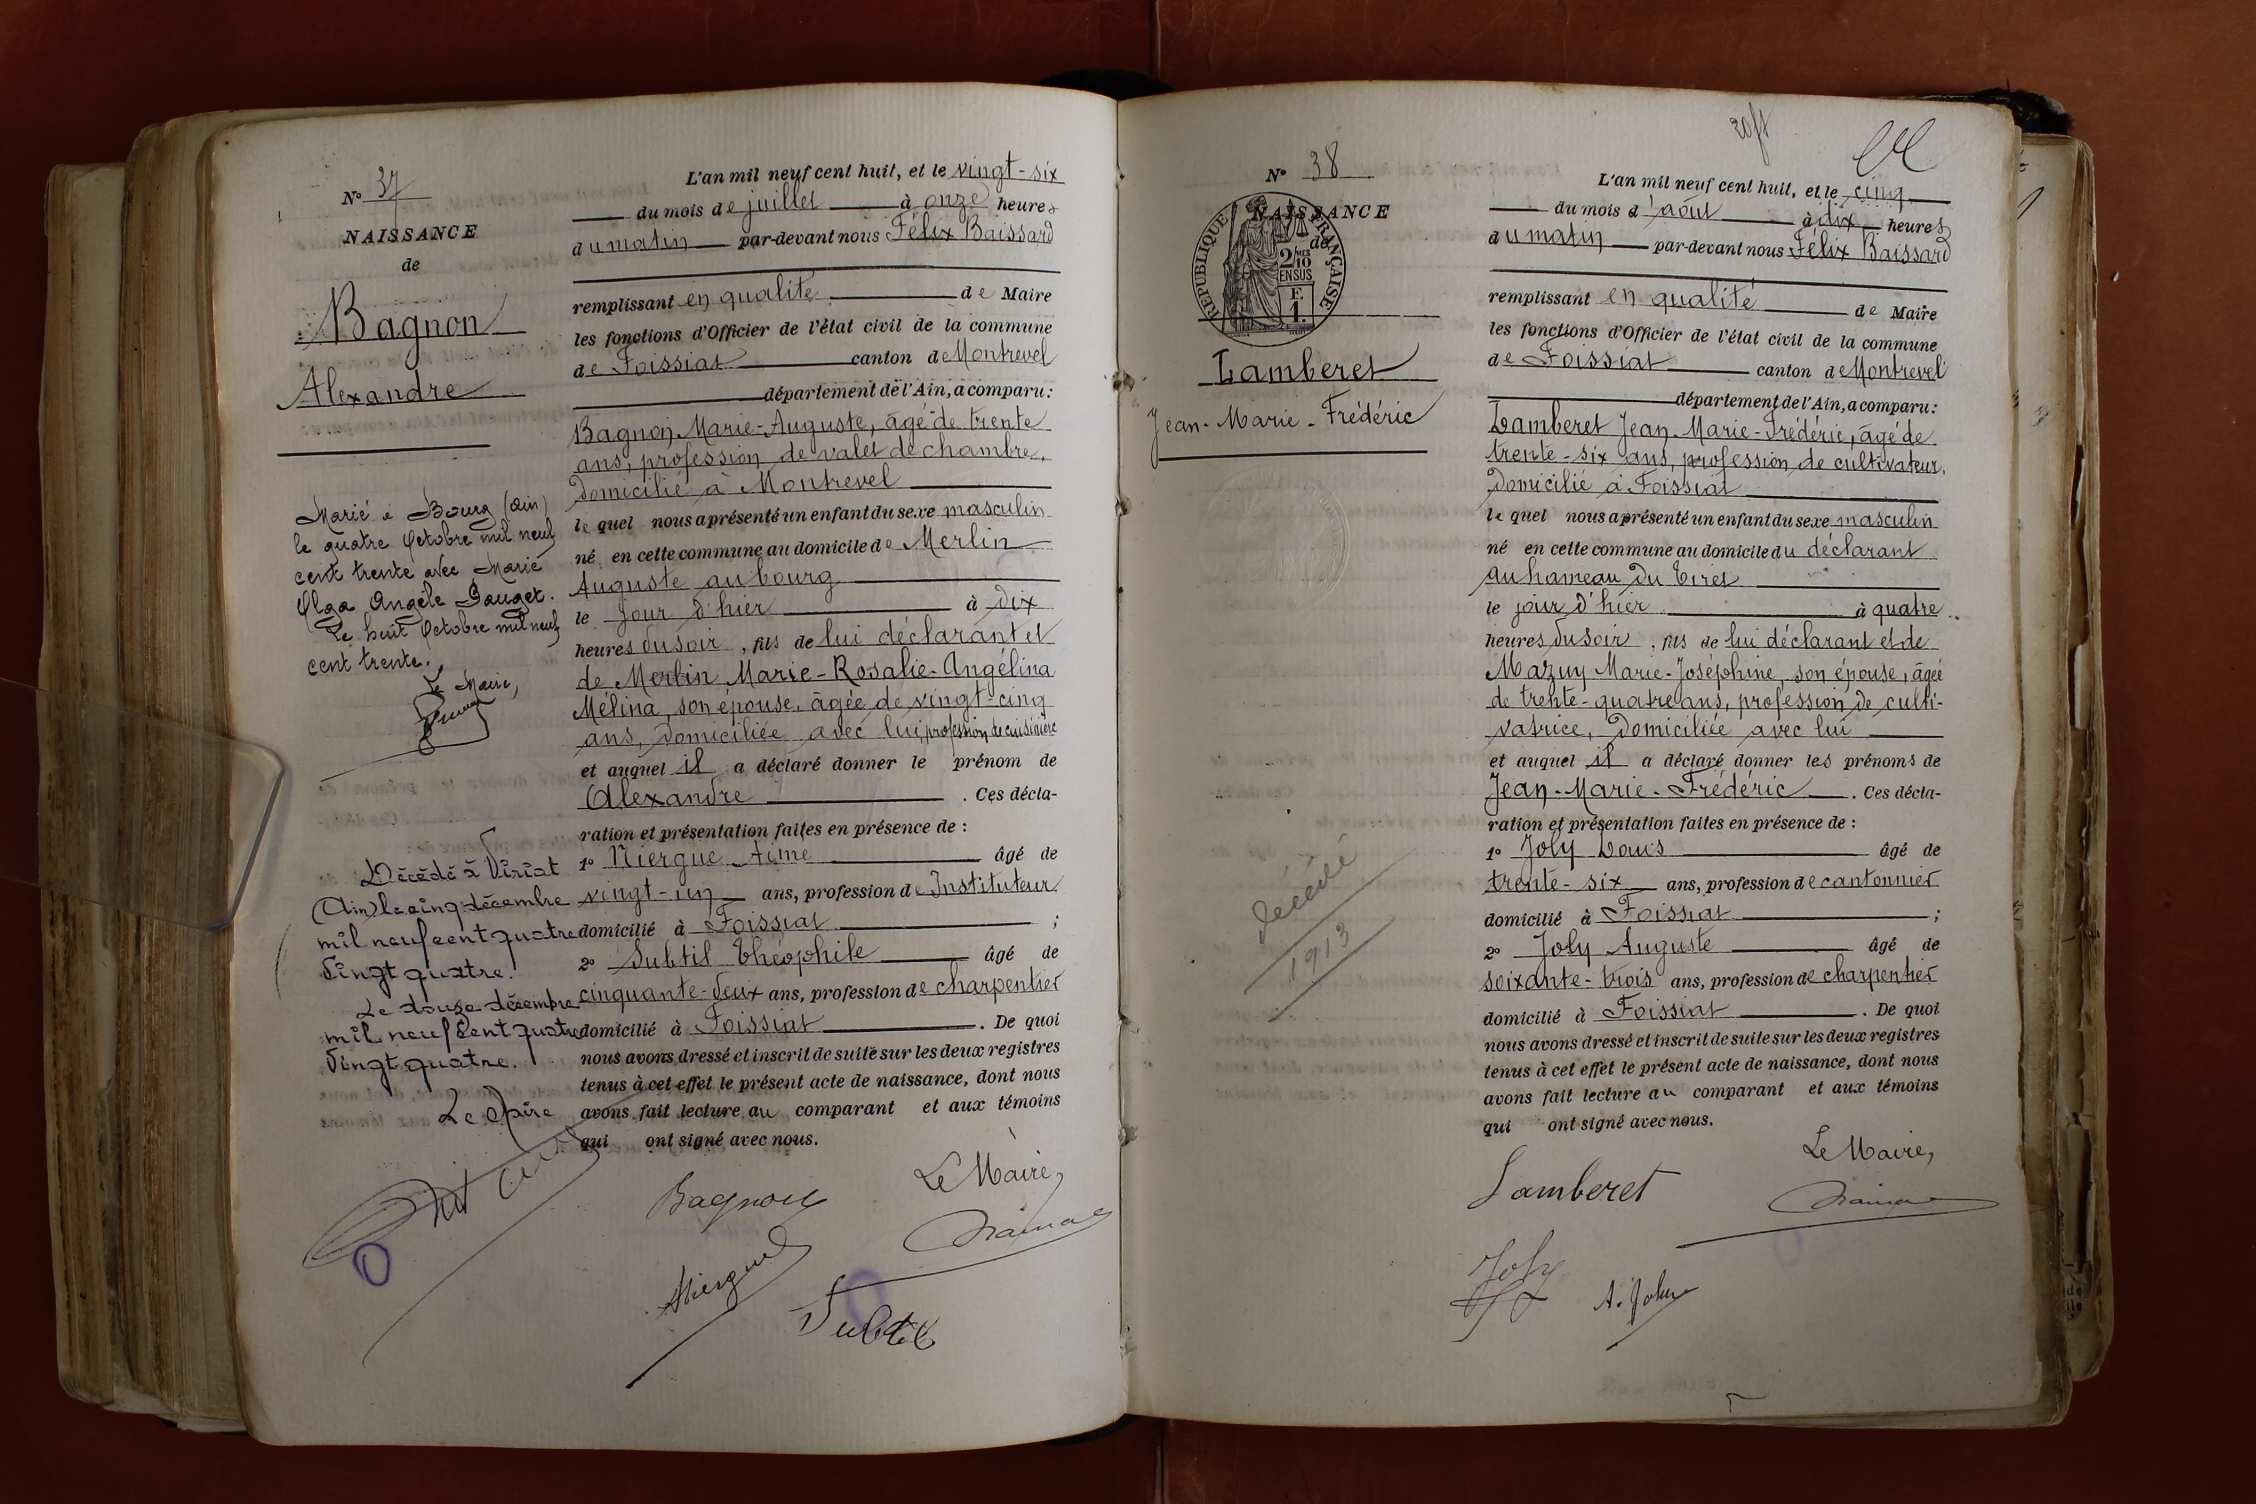 N° 37
NAISSANCE
de
Bagnon
Alexandre
Marié à Bourg (Ain)
le quatre Octobre mil neuf
cent trente avec Marie
Olga Angèle Gauget.
Le huit Octobre mil neuf
cent trente.
Le Maire,
Décédé à Viriat
(Ain) le cinq décembre
mil neuf cent quatre
Vingt quatre.
Le douze décembre
mil neuf cent quatre
Vingt quatre.
Le Maire
L'an mil neuf cent huit, et le vingt-six
du mois de juillet à onze heures
du matin par-devant nous Félix Baissard
remplissant en qualité de Maire
les fonctions d'Officier de l'état civil de la commune
de Foissiat canton de Montrevel
département de l'Ain, a comparu:
Bagnon Marie-Auguste, âgé de trente
ans, profession de valet de chambre,
domicilié à Montrevel
le quel nous a présenté un enfant du sexe masculin
né en cette commune au domicile de Merlin
Auguste au bourg
le jour d'hier à dix
heures du soir, fils de lui déclarant et
de Merlin Marie-Rosalie-Angélina
Mélina, son épouse, âgée de vingt-cinq
ans, domiciliée avec lui, profession de cuisinière
et auquel il a déclaré donner le prénom de
Alexandre. Ces décla-
ration et présentation faites en présence de :
1° Niergue Aimé âgé de
vingt-un ans, profession de Instituteur
domicilié à Foissiat ;
2° Subtil Théophile âgé de
cinquante-deux ans, profession de charpentier
domicilié à Foissiat. De quoi
nous avons dressé et inscrit de suite sur les deux registres
tenus à cet effet le présent acte de naissance, dont nous
avons fait lecture au comparant et aux témoins
qui ont signé avec nous.
Le Maire,
Bagnon
Niergue
Subtil
N° 38
NAISSANCE
de
RÉPUBLIQUE FRANÇAISE
2/10
EN SUS
F.
1.
Lamberet
Jean-Marie-Frédéric
décédé
1913
L'an mil neuf cent huit, et le cinq
du mois d'août à dix heures
du matin par-devant nous Félix Baissard
remplissant en qualité de Maire
les fonctions d'Officier de l'état civil de la commune
de Foissiat canton de Montrevel
département de l'Ain, a comparu:
Lamberet Jean-Marie-Frédéric, âgé de
trente-six ans, profession de cultivateur,
domicilié à Foissiat
le quel nous a présenté un enfant du sexe masculin
né en cette commune au domicile du déclarant
au hameau du Tiret
le jour d'hier à quatre
heures du soir, fils de lui déclarant et de
Mazuy Marie-Joséphine, son épouse, âgée
de trente-quatre ans, profession de culti-
vatrice, domiciliée avec lui
et auquel il a déclaré donner les prénoms de
Jean-Marie-Frédéric. Ces décla-
ration et présentation faites en présence de :
1° Joly Louis âgé de
trente-six ans, profession de cantonnier
domicilié à Foissiat ;
2° Joly Auguste âgé de
soixante-trois ans, profession de charpentier
domicilié à Foissiat. De quoi
nous avons dressé et inscrit de suite sur les deux registres
tenus à cet effet le présent acte de naissance, dont nous
avons fait lecture au comparant et aux témoins
qui ont signé avec nous.
Le Maire,
Lamberet
Joly
A. Joly